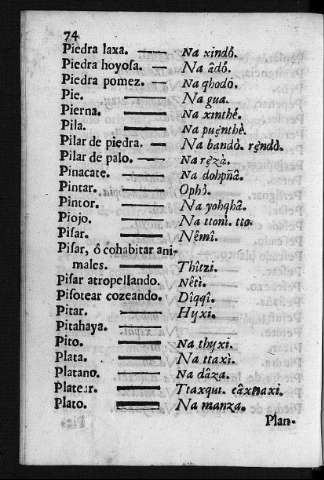 74
Piedra laxa. —— Na xindô.
Piedra hoyosa. — Na âdô.
Piedra pomez. — Na qhodò.
Pie. —— Na gua.
Pierna. —— Na xinthê.
Pila. —— Na puẹnthê.
Pilar de piedra. — Na bandò. rẹ́ndò.
Pilar de palo. — Na rẹzà.
Pinacate. —— Na dohpñâ.
Pintar. —— Ophò.
Pintor. —— Na yohqhâ.
Piojo. —— Na ttonì. tto.
Pisar. —— Nêmî.
Pisar, ó cohabitar ani-
males. —— Thîtzi.
Pisar atropellando. Nêtì.
Pisotear cozeando. Dîqqî.
Pitar. —— Hyxi.
Pitahaya. ——
Pito. —— Na thyxi.
Plata. —— Na ttaxì.
Platano. —— Na dâza.
Platear. —— Ttaxqui. câxttaxi.
Plato. —— Na manza.
Plan-